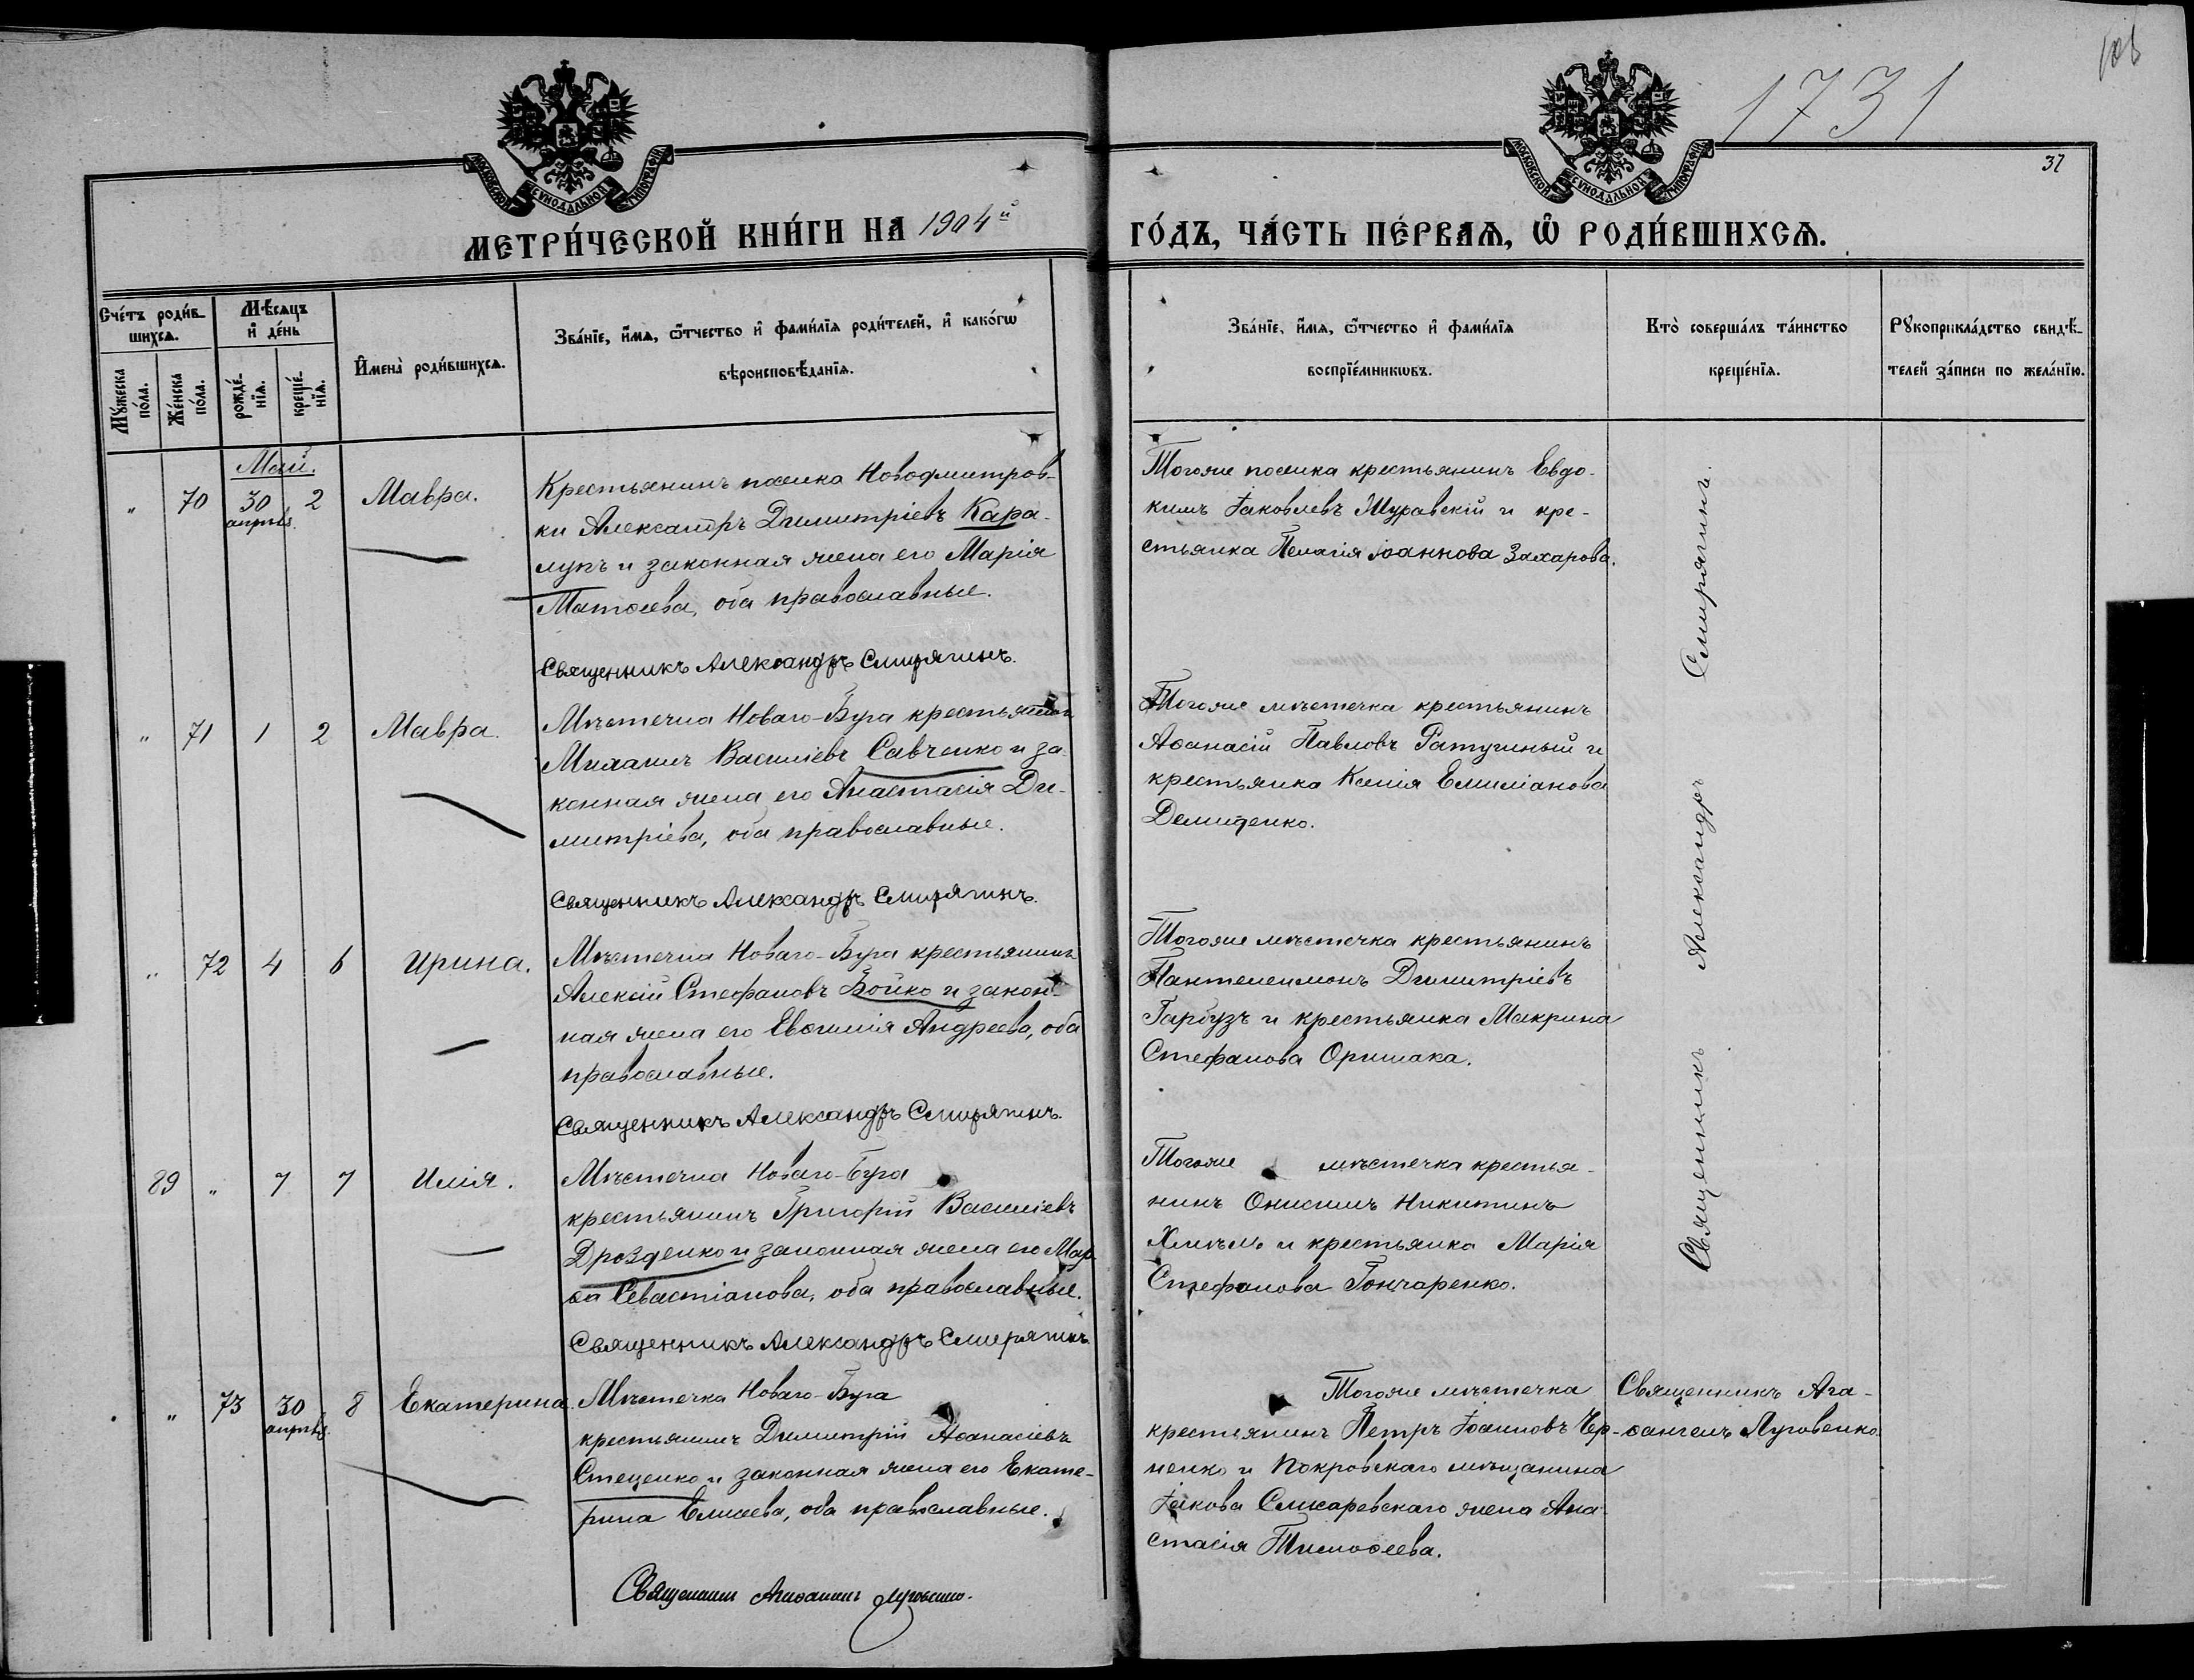 1731
37
МОСКОВСКОЙ СѴНОДАЛЬНОЙ ТИПОГРАФІИ
МОСКОВСКОЙ СѴНОДАЛЬНОЙ ТИПОГРАФІИ
МЕТРИ́ЧЕСКОЙ КНИ́ГИ НА 1904й
ГО́ДЪ, ЧА́СТЬ ПЕ́РВАѦ, Ѿ РОДИ́ВШИХСѦ.
Сче́тъ роди́в-
шихсѧ.
Мꙋ́жеска по́ла.
Же́нска по́ла.
Мѣ́сѧцъ
и҆ де́нь
рожде́-нїѧ.
креще́-нїѧ.
И҆мена̀ роди́вшихсѧ.
Зва́нїе, и҆́мѧ, ѻ҆́тчество и҆ фами́лїѧ роди́телей, и҆ како́гѡ
вѣроисповѣ́данїѧ.
Зва́нїе, и҆́мѧ, ѻ҆́тчество и҆ фами́лїѧ
воспрїе́мникѡвъ.
Кто̀ соверша́лъ та́инство
креще́нїѧ.
Рꙋкоприкла́дство свидѣ́-
телей за́писи по жела́нїю.
Май.
" 70 30 апрѣля 2 Мавра.
Крестьянинъ поселка Новодмитров-
ки Александръ Димитріевъ Кара-
лунъ и законная жена его Марія
Матѳеева, оба православные.
Священникъ Александръ Смирягинъ.
Тогоже поселка крестьянинъ Евдо-
кимъ Іаковлевъ Журавскій и кре-
стьянка Пелагія Іоаннова Захарова.
" 71 1 2 Мавра.
Мѣстечка Новаго-Буга крестьянинъ
Михаилъ Василіевъ Савченко и за-
конная жена его Анастасія Ди-
митріева, оба православные.
Священникъ Александръ Смирягинъ.
Тогоже мѣстечка крестьянинъ
Аѳанасій Павловъ Ратушный и
крестьянка Ксенія Емиліанова
Демиденко.
" 72 4 6 Ирина.
Мѣстечка Новаго-Буга крестьянинъ
Алексій Стефановъ Бойко и закон-
ная жена его Евѳимія Андреева, оба
православные.
Священникъ Александръ Смирягинъ.
Тогоже мѣстечка крестьянинъ
Пантелеимонъ Димитріевъ
Гарбузъ и крестьянка Макрина
Стефанова Оришака.
89 " 7 7 Илія.
Мѣстечка Новаго-Буга
крестьянинъ Григорій Василіевъ
Дрозденко и законная жена его Мар-
ѳа Севастіанова, оба православные.
Священникъ Александръ Смирягинъ.
Тогоже мѣстечка крестья-
нинъ Онисимъ Никитинъ
Хмѣль и крестьянка Марія
Стефанова Гончаренко.
Священникъ Александръ Смирягинъ
" 73 30 апрѣля 8 Екатерина.
Мѣстечка Новаго-Буга
крестьянинъ Димитрій Аѳанасіевъ
Стеценко и законная жена его Екате-
рина Елисеева, оба православные.
Священникъ Агаѳангелъ Луговенко.
Тогоже мѣстечка
крестьянинъ Петръ Іоанновъ Чер-
ненко и Покровскаго мѣщанина
Іакова Слисаревскаго жена Ана-
стасія Тимоѳеева.
Священникъ Ага-
ѳангелъ Луговенко